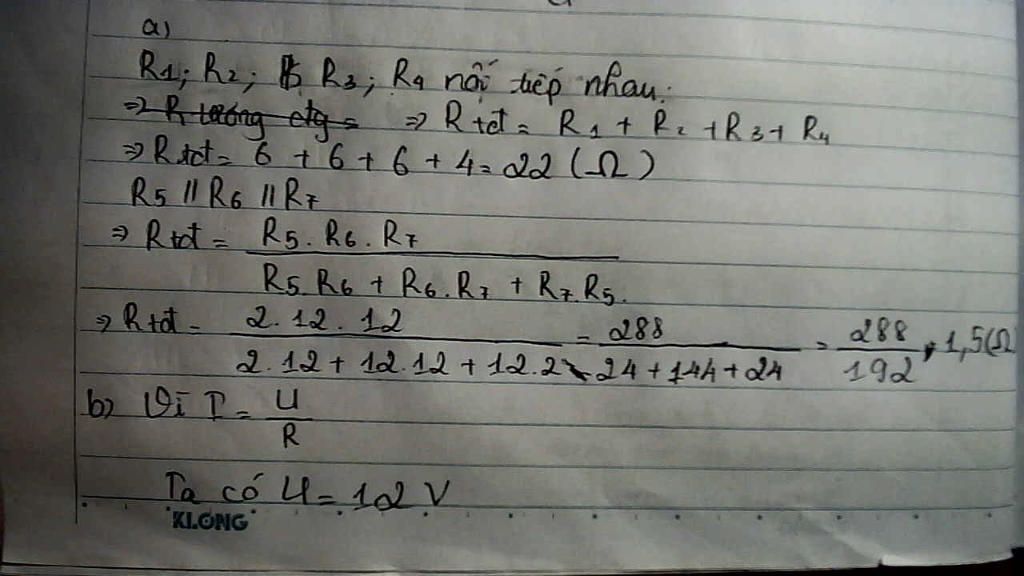 a)
R1; R2; R3; R4 nối tiếp nhau.
⇒ R tương đg = ⇒ Rtđ = R1 + R2 + R3 + R4
⇒ Rtđ = 6 + 6 + 6 + 4 = 22 (Ω)
R5 // R6 // R7
⇒ Rtđ = R5. R6. R7
R5. R6 + R6. R7 + R7. R5.
⇒ Rtđ = 2. 12. 12 = 288 = 288 = 1,5(Ω
2. 12 + 12. 12 + 12. 2 24 + 144 + 24 192
b) Vì I = U
R
Ta có U = 12 V
KLONG